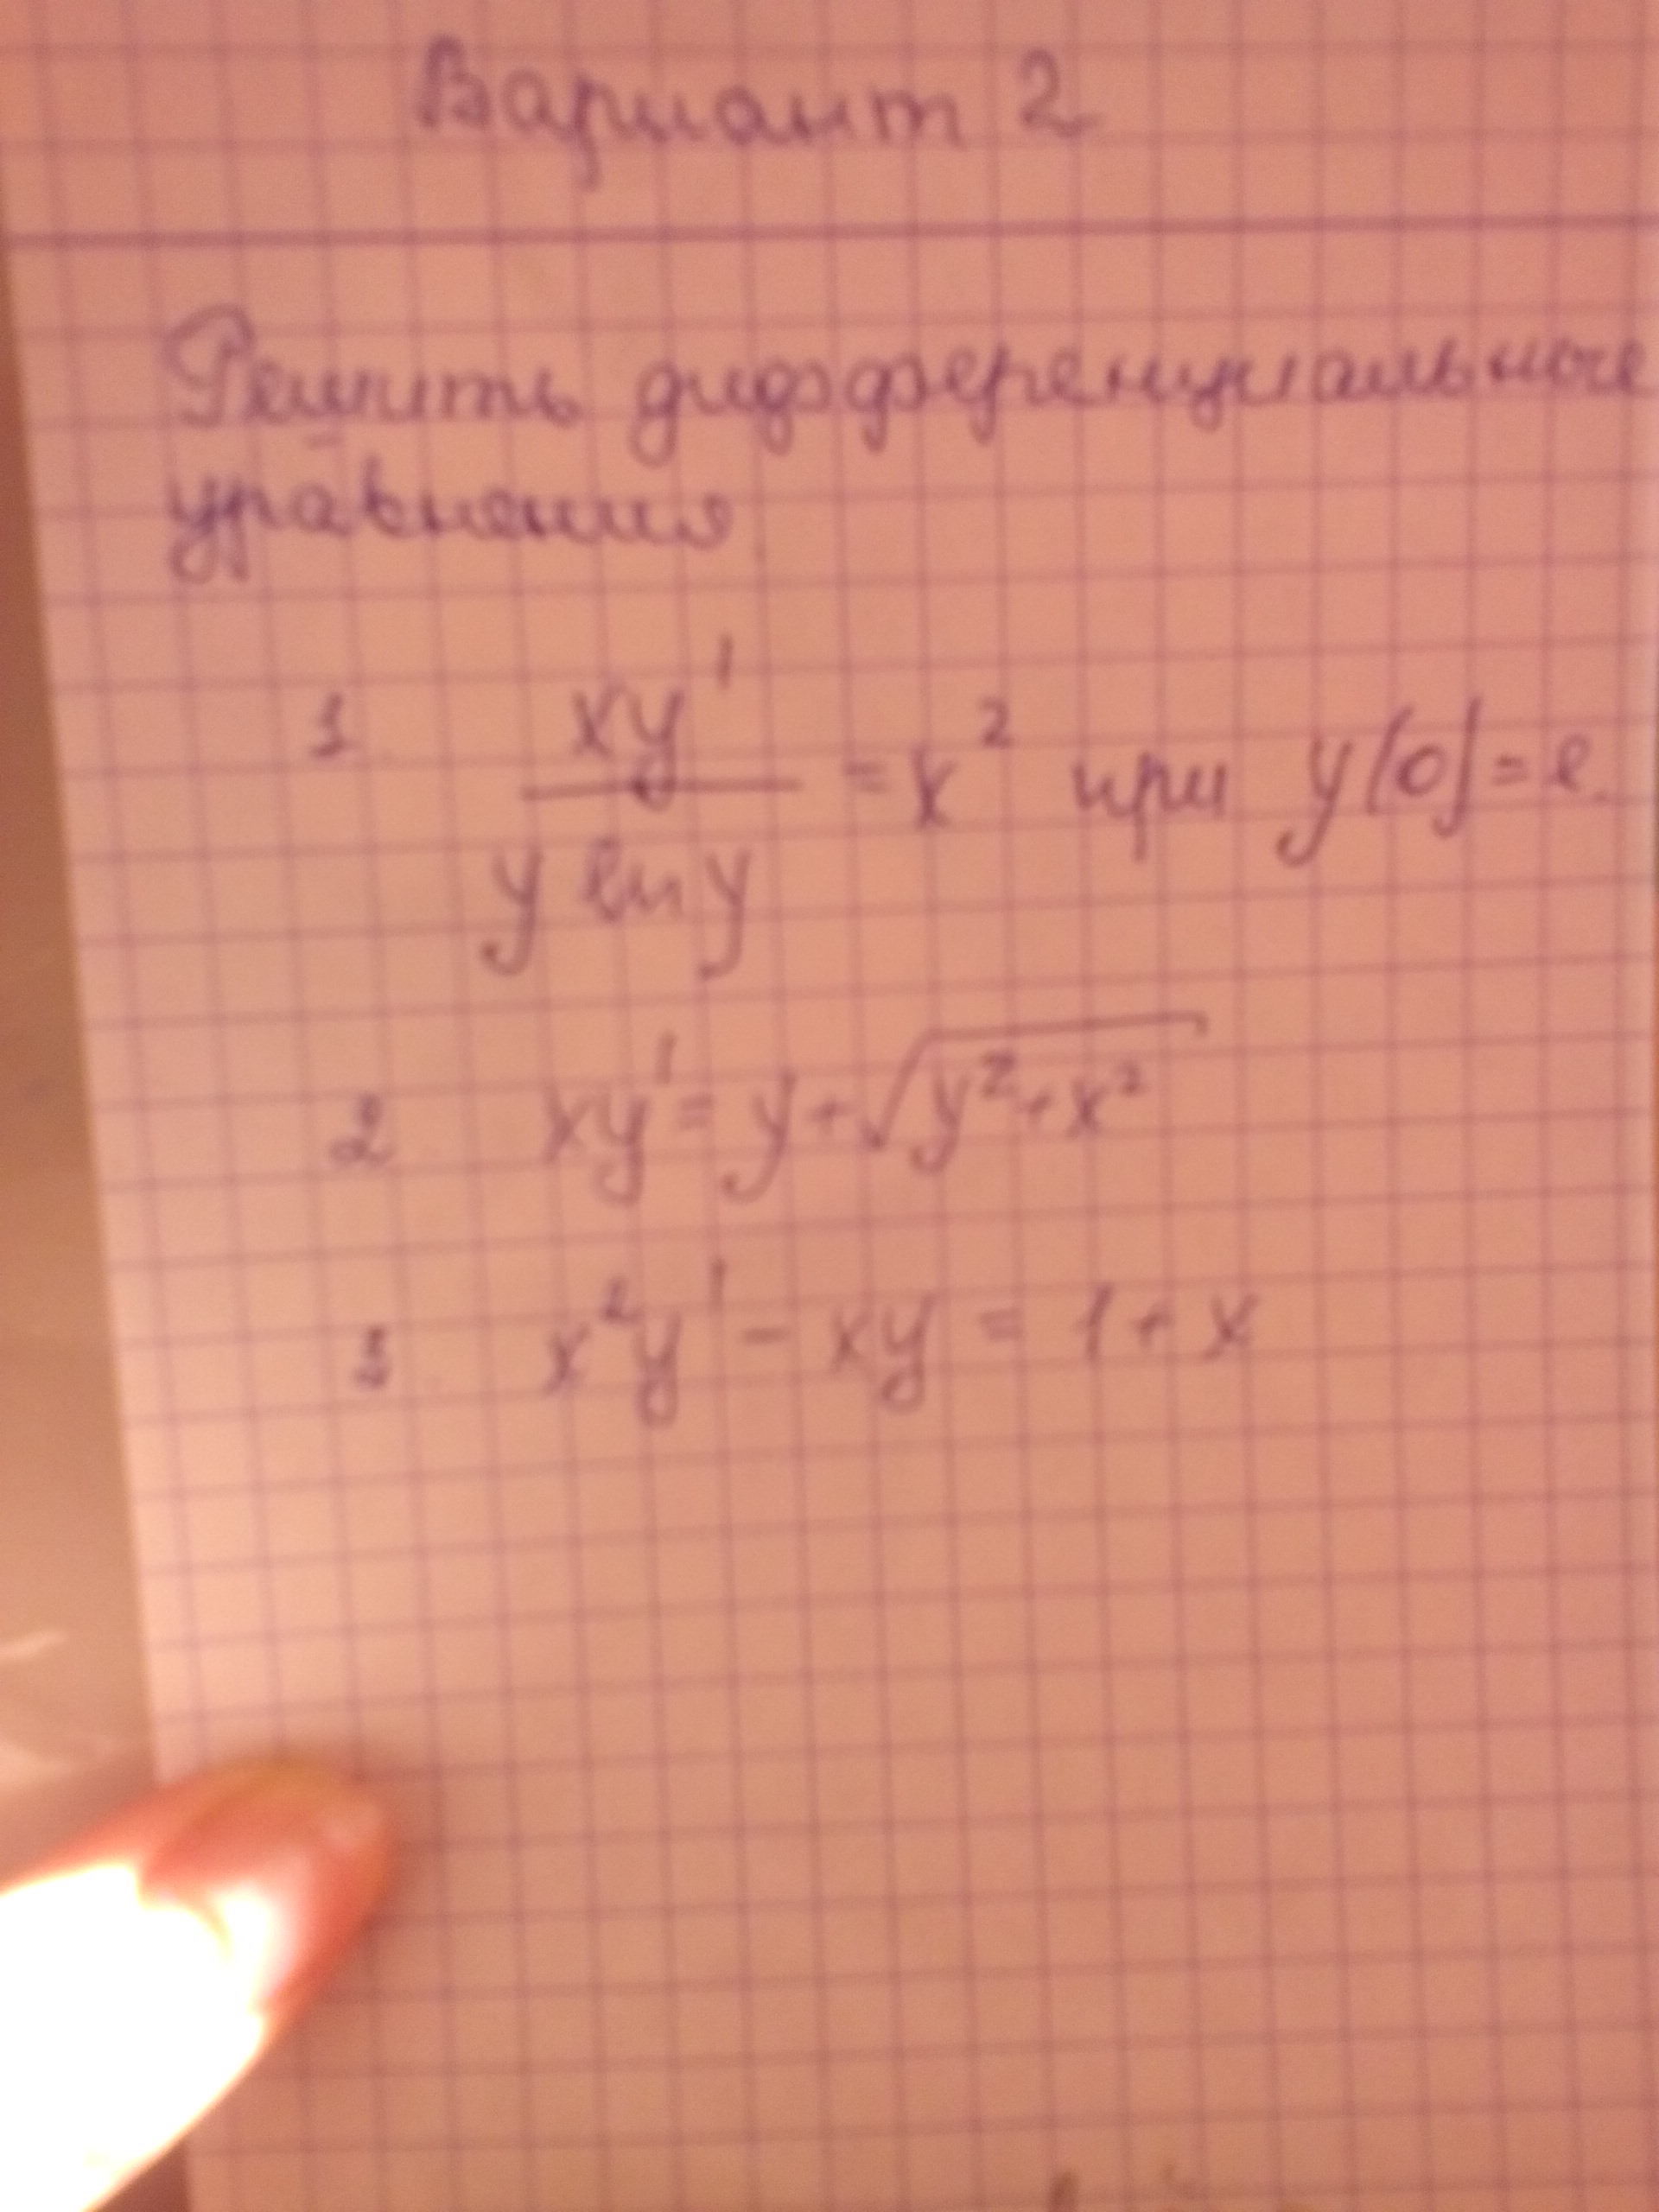 Вариант 2
Решить дифференциальные
уравнения
1 xy' / (y ln y) = x² при y(0)=e.
2 xy' = y+√(y²+x²)
3 x²y' - xy = 1+x